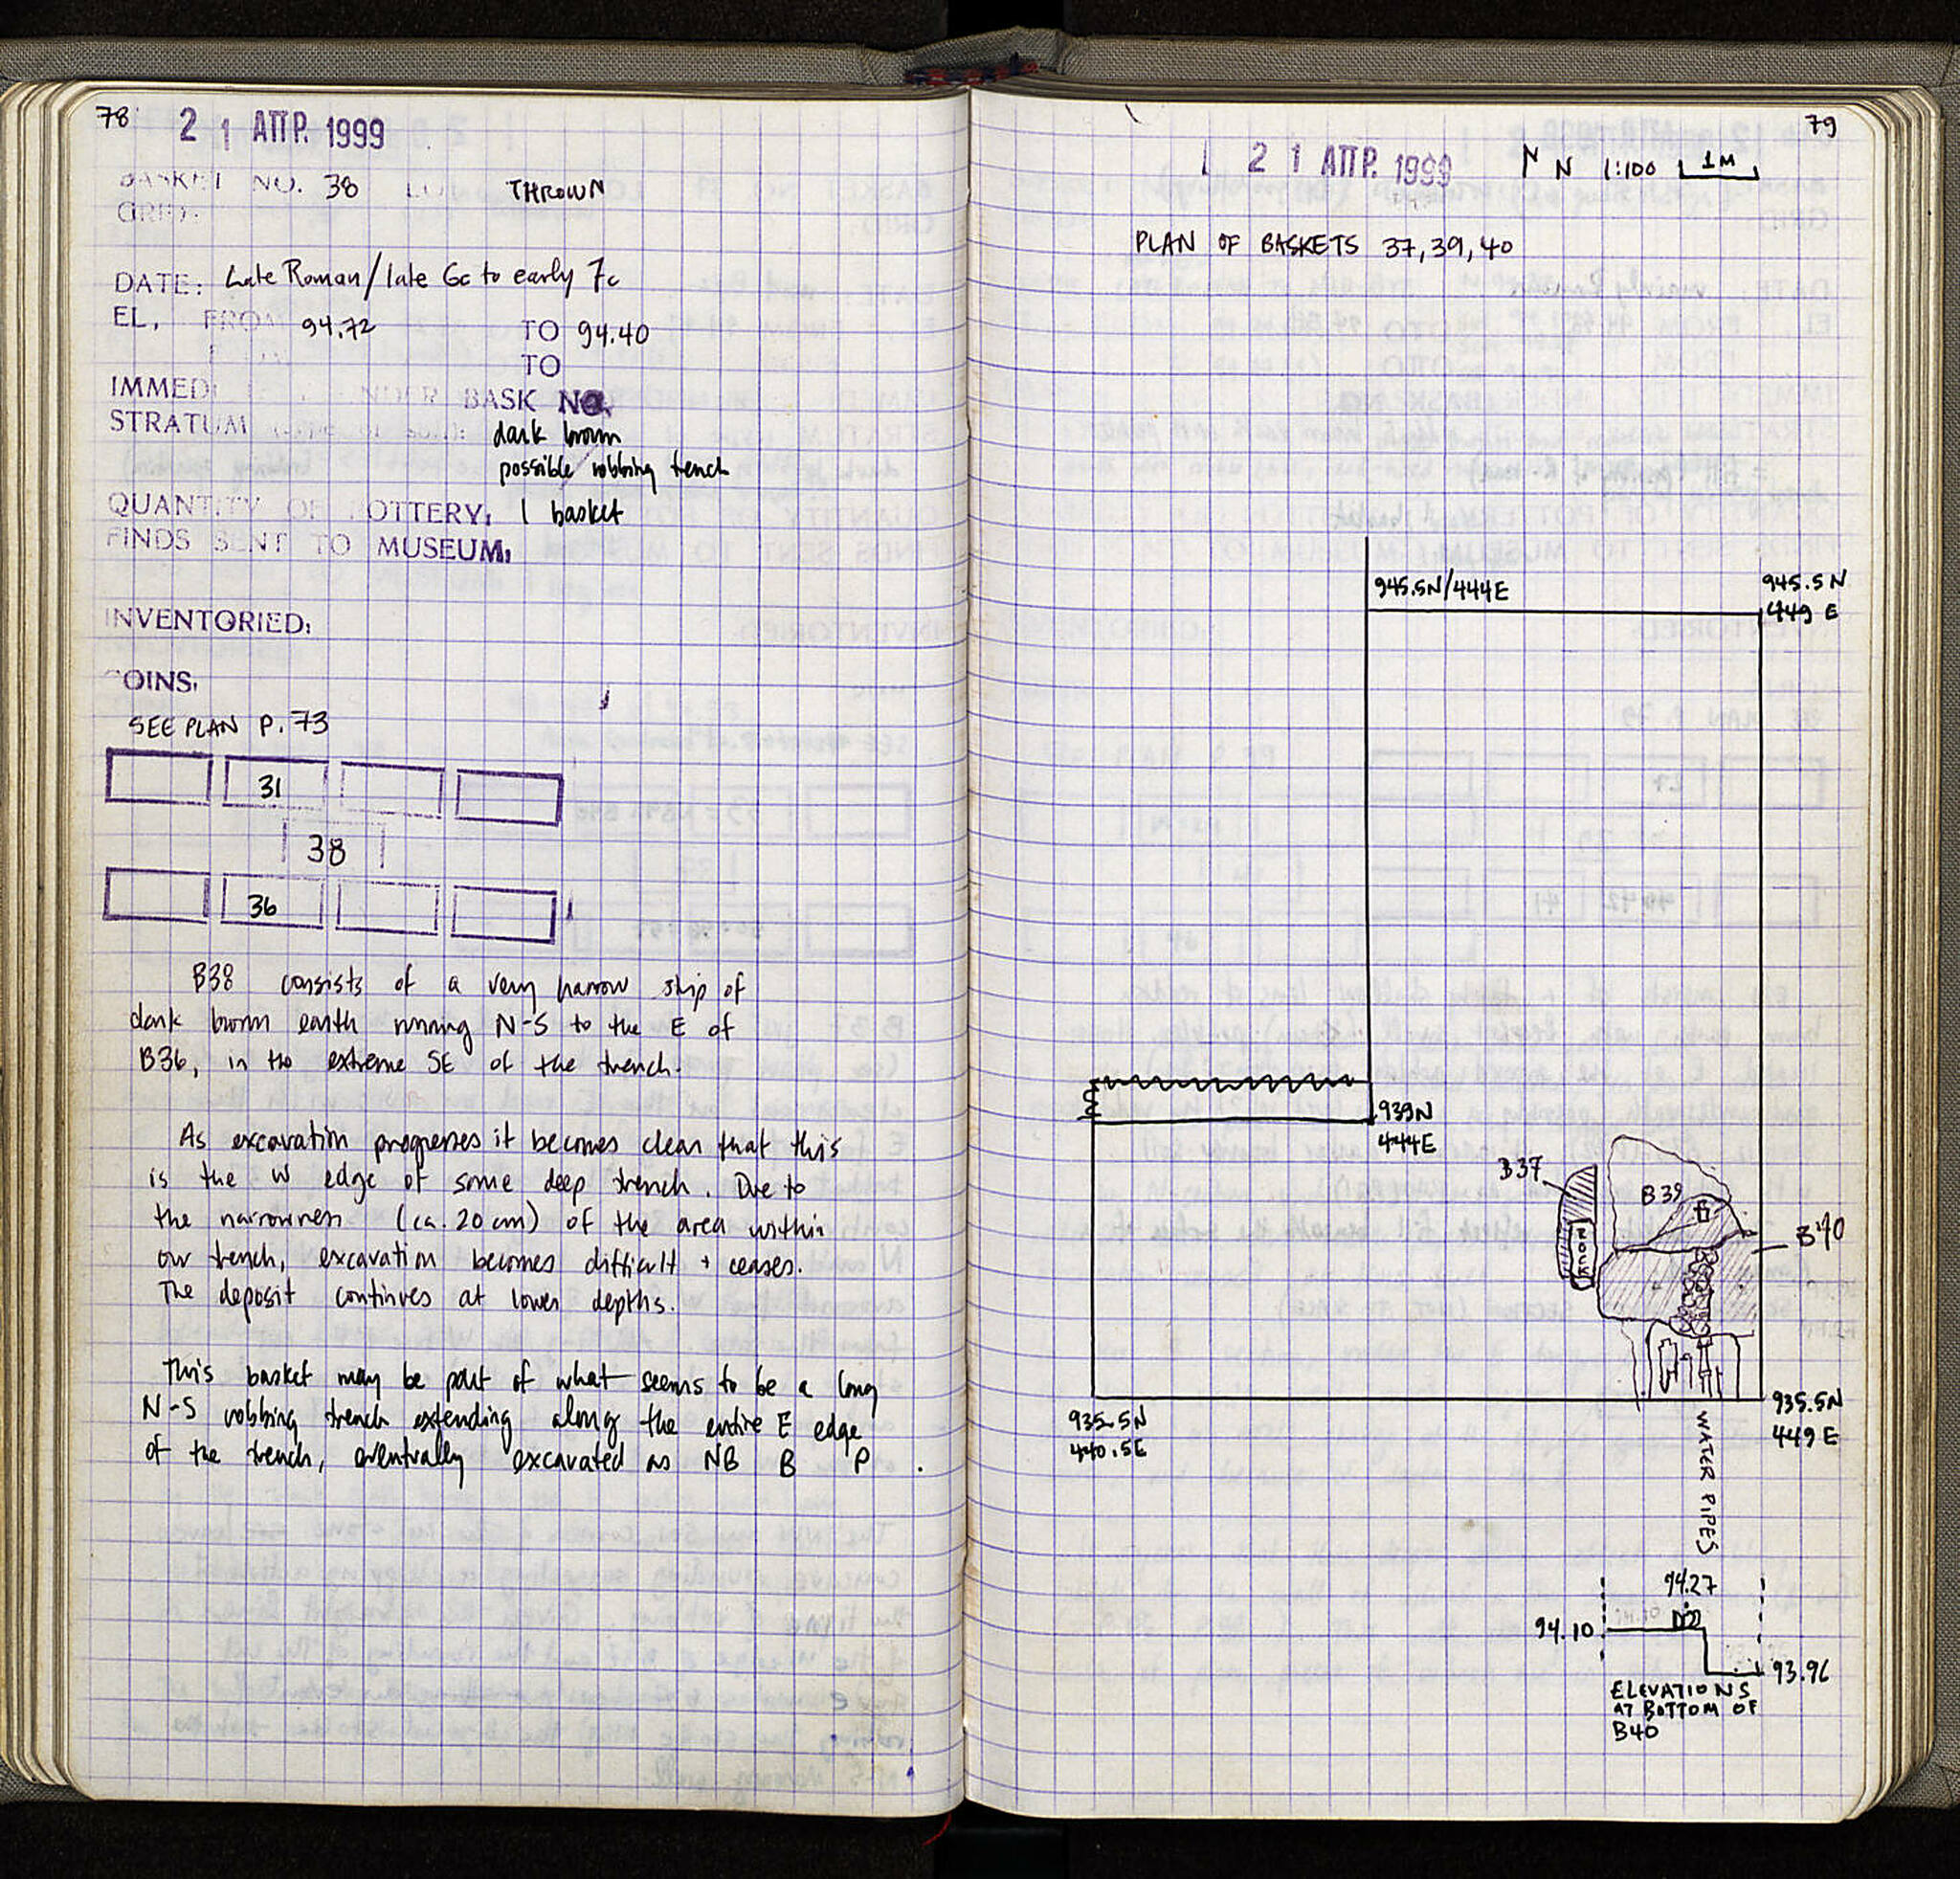 78
2 1 ΑΠΡ. 1999
BASKET NO. 38 THROWN
GRID:
DATE: Late Roman/late 6c to early 7c
EL, FROM 94.72 TO 94.40
TO
IMMED UNDER BASK NO.
STRATUM dark brown
possible robbing trench
QUANTITY OF POTTERY: 1 basket
FINDS SENT TO MUSEUM:
INVENTORIED:
COINS:
SEE PLAN P. 73
31
38
36
B38 consists of a very narrow strip of
dark brown earth running N-S to the E of
B36, in the extreme SE of the trench.
As excavation progresses it becomes clear that this
is the W edge of some deep trench. Due to
the narrowness (ca. 20 cm) of the area within
our trench, excavation becomes difficult + ceases.
The deposit continues at lower depths.
This basket may be part of what seems to be a long
N-S robbing trench extending along the entire E edge
of the trench, eventually excavated as NB B P .
79
2 1 ΑΠΡ. 1999 N 1:100 1M
PLAN OF BASKETS 37, 39, 40
945.5N/444E
945.5N
449 E
939N
444E
B37
B39
ROCK
B40
935.5N
440.5E
935.5N
449 E
WATER PIPES
94.27
94.10
93.96
ELEVATIONS
AT BOTTOM OF
B40